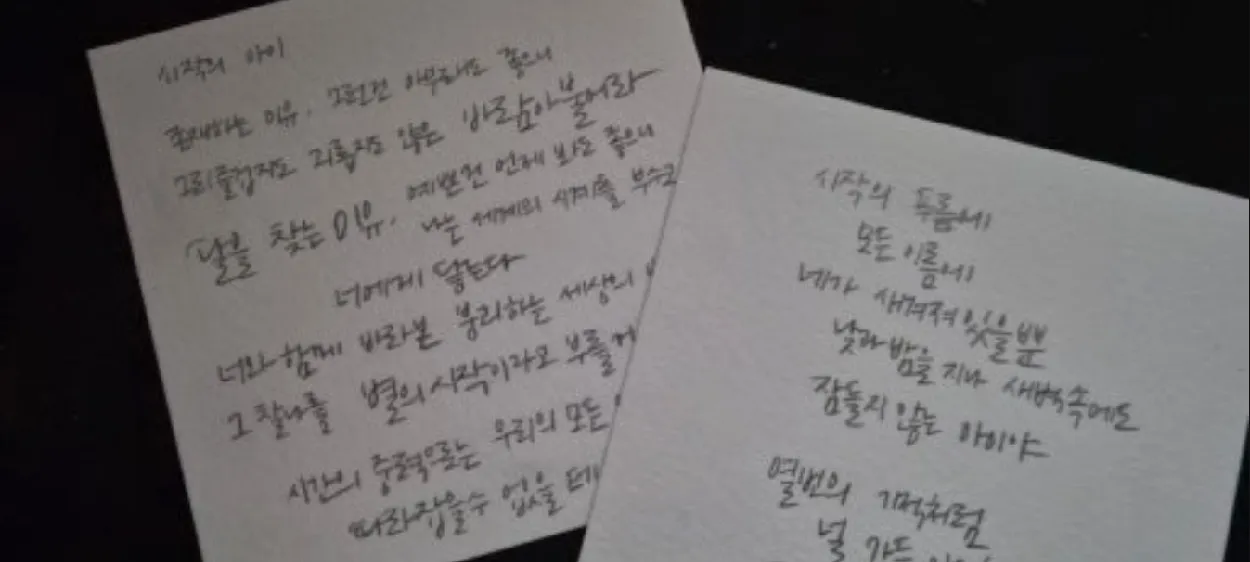 시작의 아이
존재하는 이유, 그런건 아무래도 좋으니
그리 즐겁지도 괴롭지도 않은 바람아 불어라
답을 찾는 이유, 예쁜건 언제 봐도 좋으니
나는 세계의 시계를 부수고
너에게 닿는다
너와 함께 바라본 붕괴하는 세상의
그 찰나를 별의 시작이라고 부를게
시간의 중력으로는 우리의 모든
따라잡을수 없을 테
시작의 푸름에
모든 이름에
네가 새겨져있을뿐
낮과 밤을 지나 새벽 속에도
잠들지 않는 아이야
열번의 기적처럼
널 가득